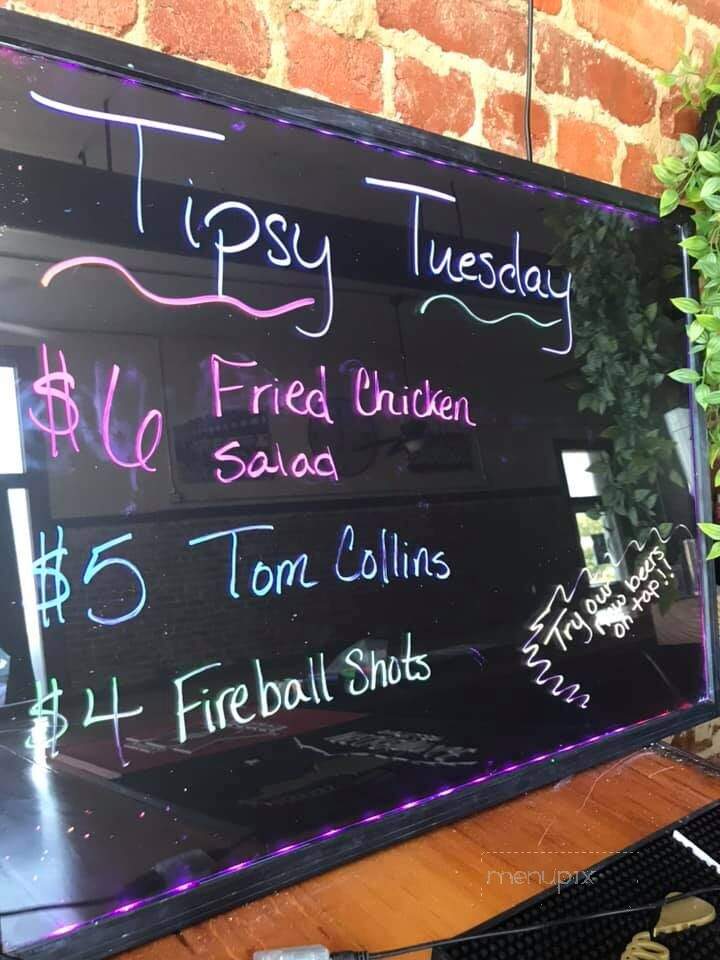 Tipsy Tuesday
$6 Fried Chicken
Salad
$5 Tom Collins
$4 Fireball Shots
Try our
new beers
on tap!!
menupix